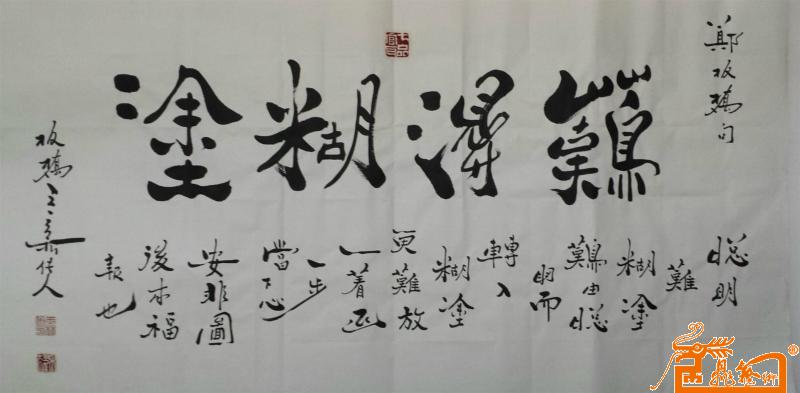 鄭板橋句
難得糊塗
聰明
難
糊塗
難由聰
明而
轉入
糊塗
更難放
一着退
一步
當下心
安非圖
後來福
報也
板橋